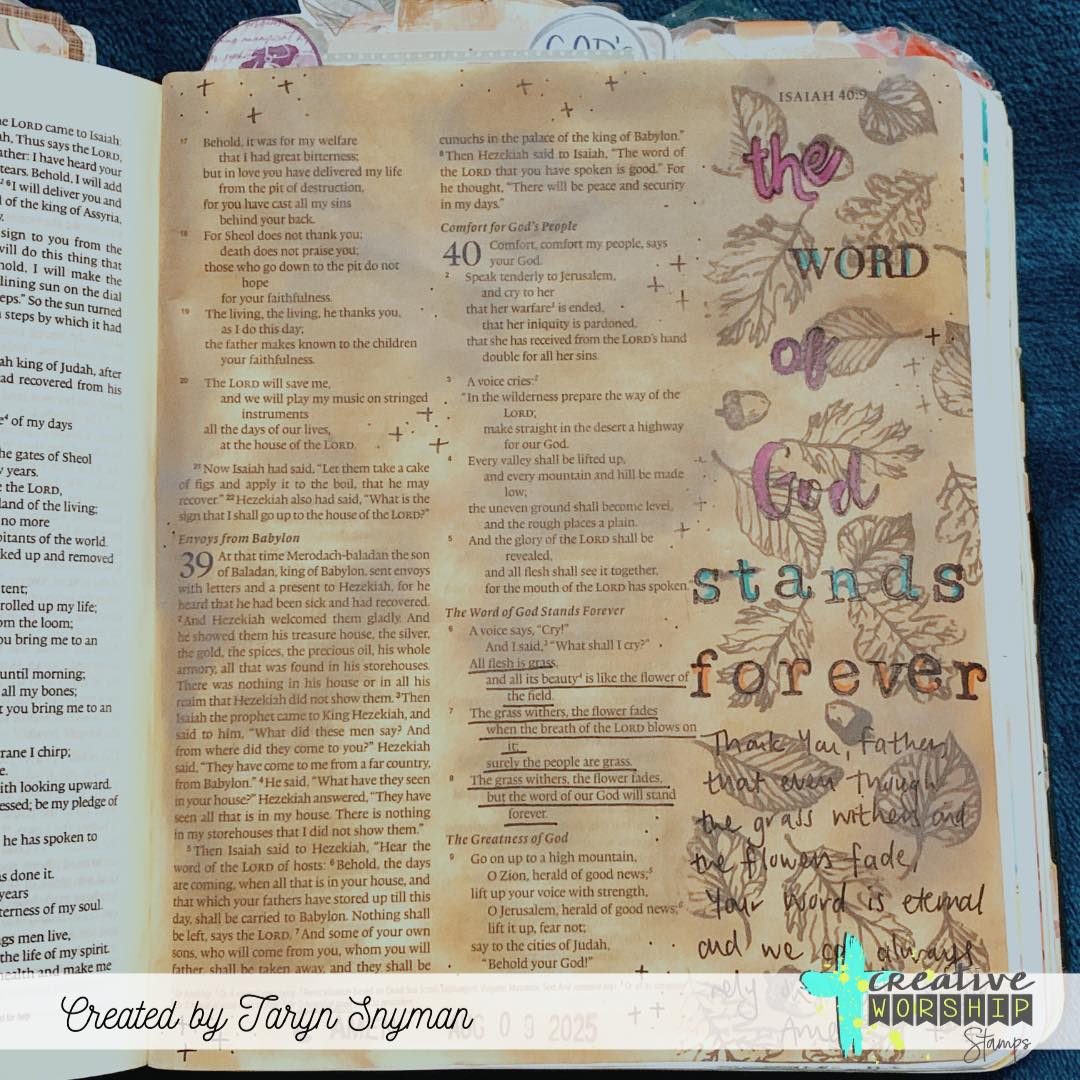 GOD's
e LORD came to Isaiah:
h, Thus says the LORD,
ather: I have heard your
tears. Behold, I will add
6 I will deliver you and
of the king of Assyria,
sign to you from the
will do this thing that
hold, I will make the
lining sun on the dial
eps." So the sun turned
steps by which it had
ah king of Judah, after
ad recovered from his
of my days
he gates of Sheol
years.
e the LORD,
land of the living;
no more
bitants of the world.
ked up and removed
tent;
rolled up my life;
om the loom;
ou bring me to an
until morning;
all my bones;
t you bring me to an
rane I chirp;
e.
ith looking upward.
essed; be my pledge of
he has spoken to
s done it.
years
terness of my soul.
gs men live,
the life of my spirit.
health and make me
17 Behold, it was for my welfare
that I had great bitterness;
but in love you have delivered my life
from the pit of destruction,
for you have cast all my sins
behind your back.
18 For Sheol does not thank you;
death does not praise you;
those who go down to the pit do not
hope
for your faithfulness.
19 The living, the living, he thanks you,
as I do this day;
the father makes known to the children
your faithfulness.
20 The LORD will save me,
and we will play my music on stringed
instruments
all the days of our lives,
at the house of the LORD.
21 Now Isaiah had said, "Let them take a cake
of figs and apply it to the boil, that he may
recover." 22 Hezekiah also had said, "What is the
sign that I shall go up to the house of the LORD?"
Envoys from Babylon
39 At that time Merodach-baladan the son
of Baladan, king of Babylon, sent envoys
with letters and a present to Hezekiah, for he
heard that he had been sick and had recovered.
2 And Hezekiah welcomed them gladly. And
he showed them his treasure house, the silver,
the gold, the spices, the precious oil, his whole
armory, all that was found in his storehouses.
There was nothing in his house or in all his
realm that Hezekiah did not show them. 3 Then
Isaiah the prophet came to King Hezekiah, and
said to him, "What did these men say? And
from where did they come to you?" Hezekiah
said, "They have come to me from a far country,
from Babylon." 4 He said, "What have they seen
in your house?" Hezekiah answered, "They have
seen all that is in my house. There is nothing
in my storehouses that I did not show them."
5 Then Isaiah said to Hezekiah, "Hear the
word of the LORD of hosts: 6 Behold, the days
are coming, when all that is in your house, and
that which your fathers have stored up till this
day, shall be carried to Babylon. Nothing shall
be left, says the LORD. 7 And some of your own
sons, who will come from you, whom you will
father, shall be taken away, and they shall be
eunuchs in the palace of the king of Babylon."
8 Then Hezekiah said to Isaiah, "The word of
the LORD that you have spoken is good." For
he thought, "There will be peace and security
in my days."
Comfort for God's People
40 Comfort, comfort my people, says
your God.
2 Speak tenderly to Jerusalem,
and cry to her
that her warfare1 is ended,
that her iniquity is pardoned,
that she has received from the LORD's hand
double for all her sins.
3 A voice cries:2
"In the wilderness prepare the way of the
LORD;
make straight in the desert a highway
for our God.
4 Every valley shall be lifted up,
and every mountain and hill be made
low;
the uneven ground shall become level,
and the rough places a plain.
5 And the glory of the LORD shall be
revealed,
and all flesh shall see it together,
for the mouth of the LORD has spoken."
The Word of God Stands Forever
6 A voice says, "Cry!"
And I said,3 "What shall I cry?"
All flesh is grass,
and all its beauty4 is like the flower of
the field.
7 The grass withers, the flower fades
when the breath of the LORD blows on
it;
surely the people are grass.
8 The grass withers, the flower fades,
but the word of our God will stand
forever.
The Greatness of God
9 Go on up to a high mountain,
O Zion, herald of good news;5
lift up your voice with strength,
O Jerusalem, herald of good news;6
lift it up, fear not;
say to the cities of Judah,
"Behold your God!"
ISAIAH 40:9
the
WORD
of
God
stands
forever
Thank You, Father,
that even though
the grass withers and
the flowers fade,
Your Word is eternal
and we can always
rely
Amen
AUG 09 2025
Created by Taryn Snyman
creative
WORSHIP
Stamps